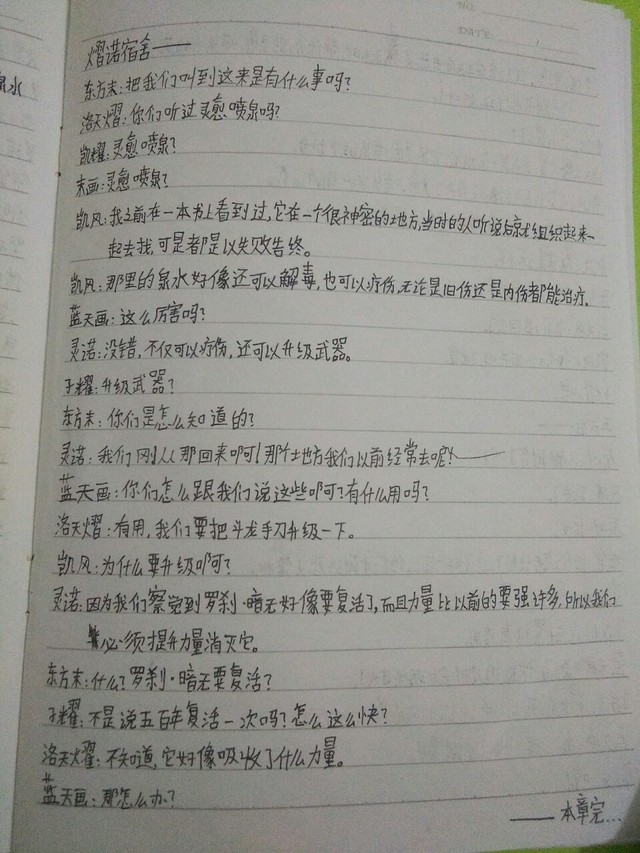 熠诺宿舍——
东方末:把我们叫到这来是有什么事吗?
洛天熠:你们听过灵愈喷泉吗?
凯耀:灵愈喷泉?
末画:灵愈喷泉?
凯风:我之前在一本书上看到过,它在一个很神密的地方,当时的人听说后就组织起来一
起去找,可是都是以失败告终。
凯风:那里的泉水好像还可以解毒,也可以疗伤,无论是旧伤还是内伤都能治疗。
蓝天画:这么厉害吗?
灵诺:没错,不仅可以疗伤,还可以升级武器。
子耀:升级武器?
东方末:你们是怎么知道的?
灵诺:我们刚从那回来啊!那个地方我们以前经常去呢!——
蓝天画:你们怎么跟我们说这些啊?有什么用吗?
洛天熠:有用,我们要把斗龙手刃升级一下。
凯风:为什么要升级啊?
灵诺:因为我们察觉到罗刹·暗无好像要复活了,而且力量比以前的要强许多,所以我们
必须提升力量消灭它。
东方末:什么?罗刹·暗无要复活?
子耀:不是说五百年复活一次吗?怎么这么快?
洛天熠:不知道,它好像吸收了什么力量。
蓝天画:那怎么办?
——本章完...
泉水